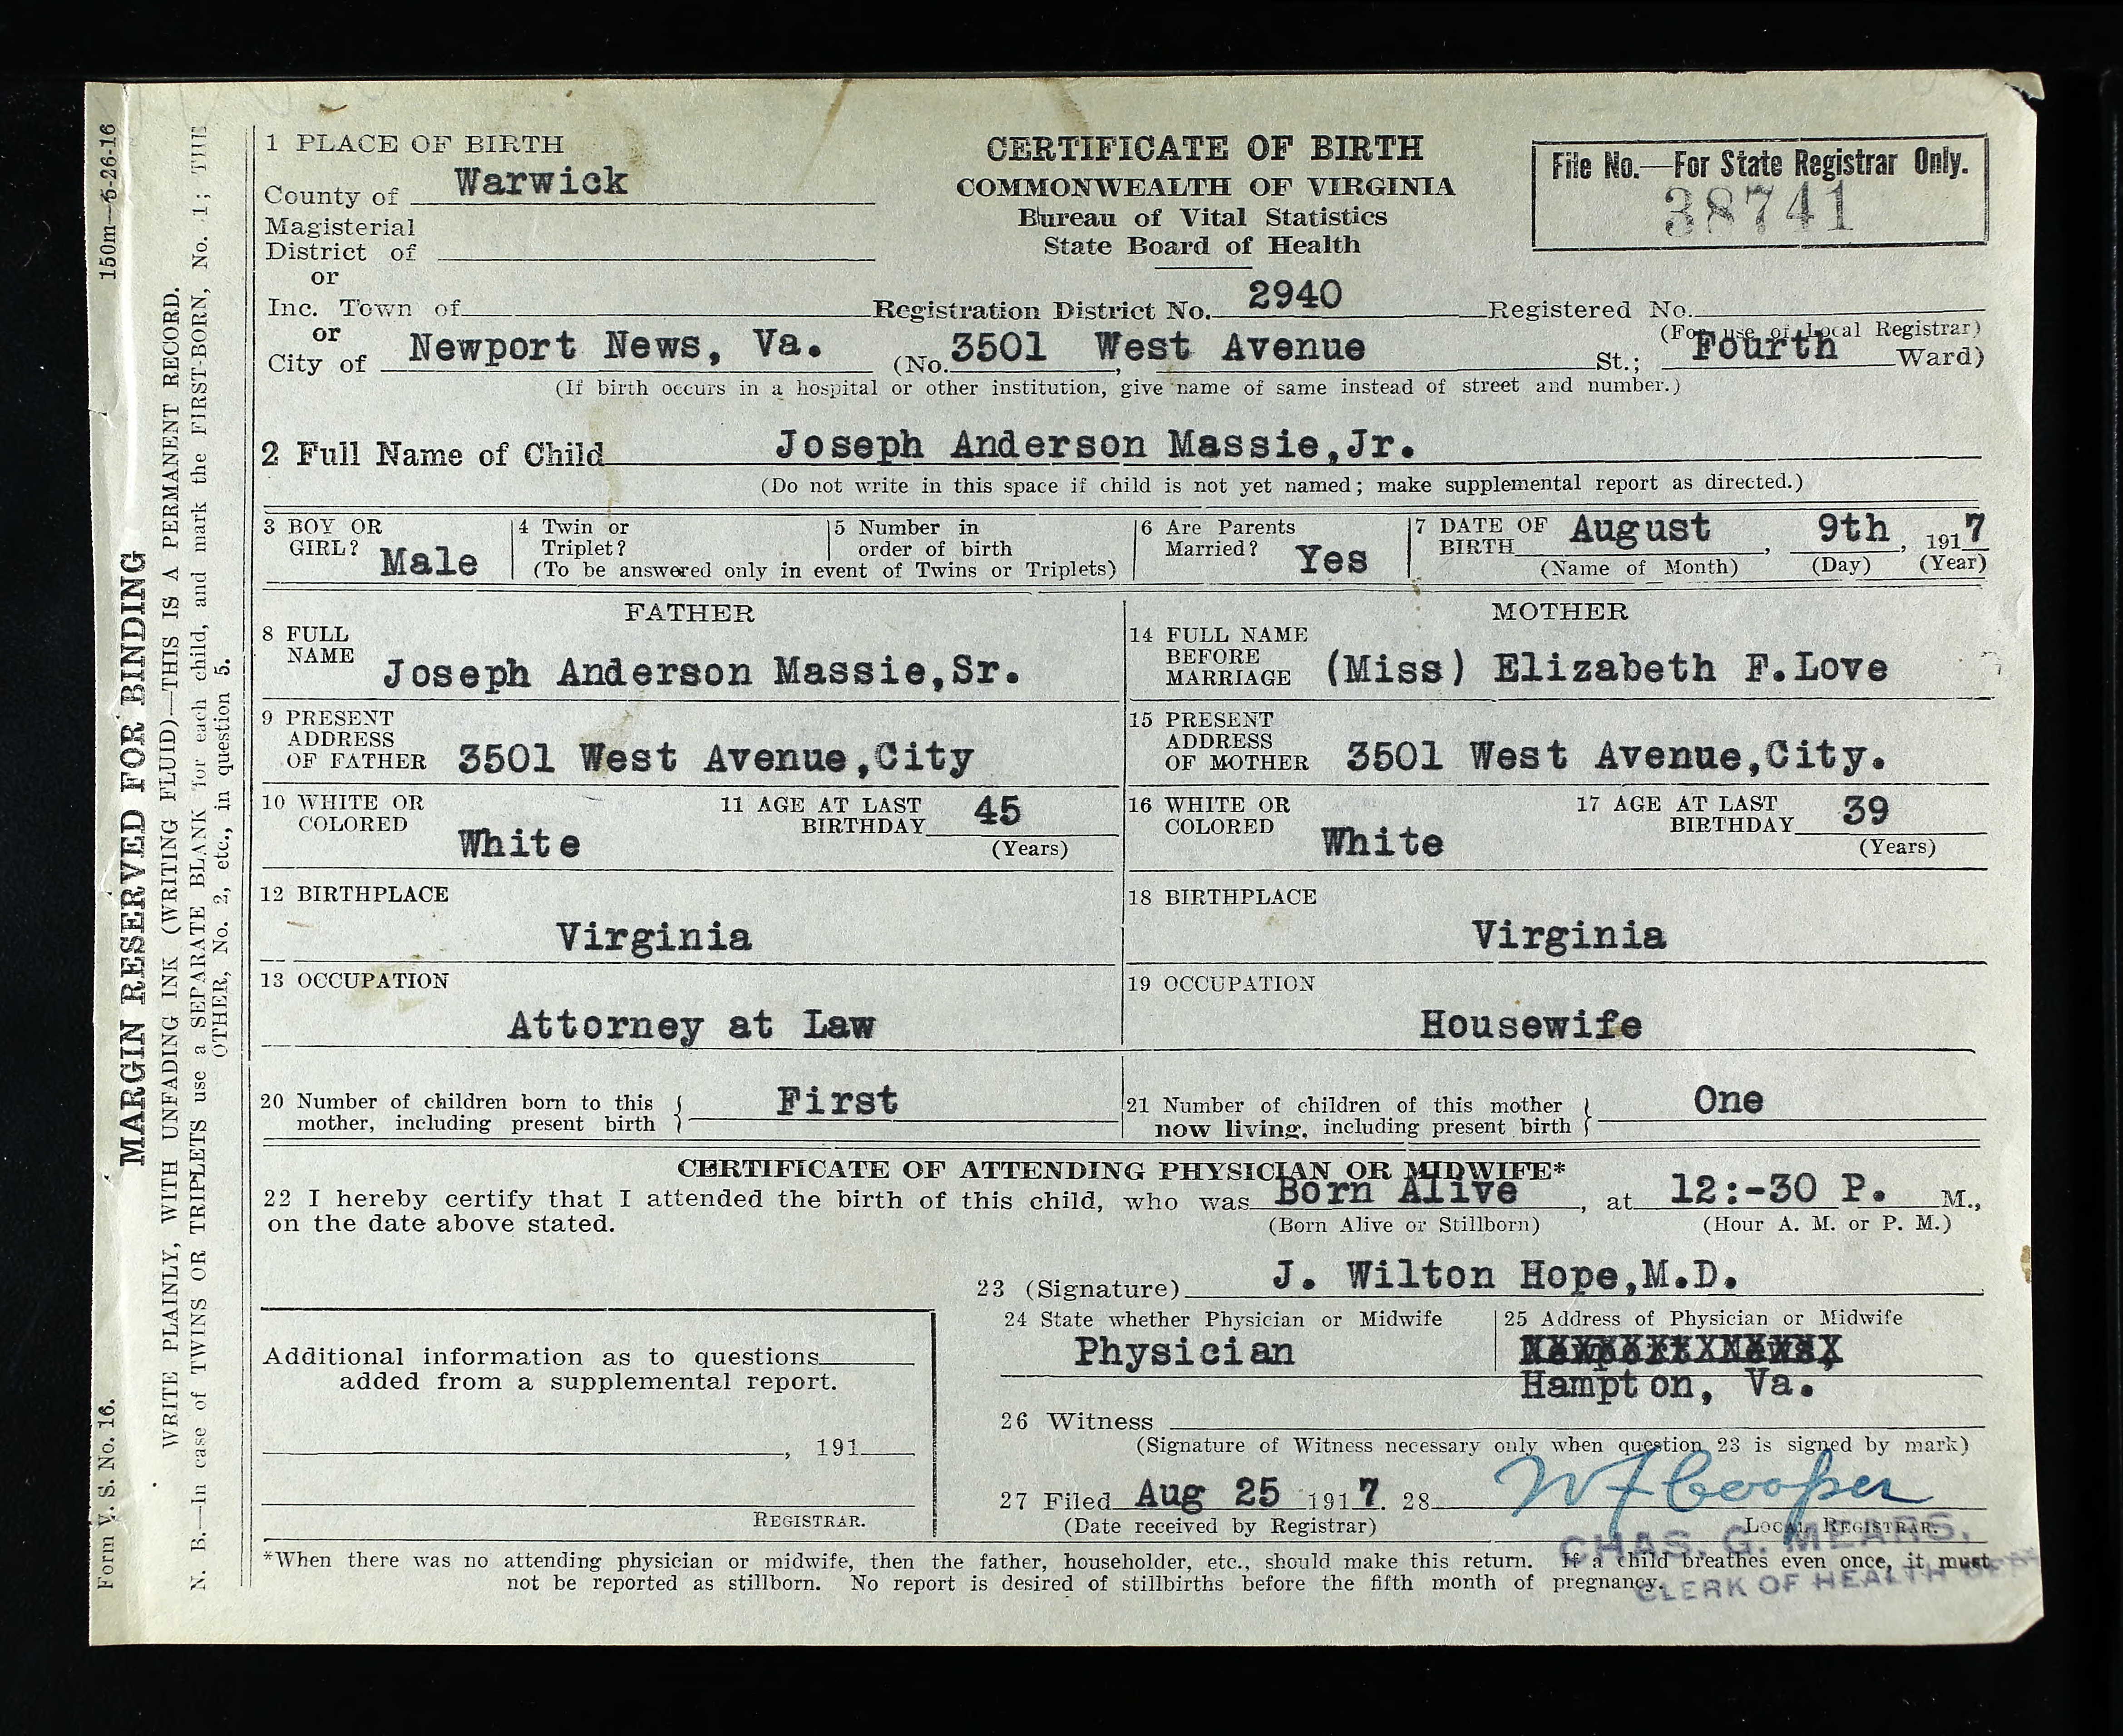 150m—5-26-16
Form V. S. No. 16.
MARGIN RESERVED FOR BINDING
WRITE PLAINLY, WITH UNFADING INK (WRITING FLUID)—THIS IS A PERMANENT RECORD.
N. B.—In case of TWINS OR TRIPLETS use a SEPARATE BLANK for each child, and mark the FIRST-BORN, No. 1; THE
OTHER, No. 2, etc., in question 5.
1 PLACE OF BIRTH
County of Warwick
Magisterial
District of
or
Inc. Town of
or
City of Newport News, Va.
CERTIFICATE OF BIRTH
COMMONWEALTH OF VIRGINIA
Bureau of Vital Statistics
State Board of Health
File No.—For State Registrar Only.
38741
Registration District No. 2940 Registered No.
(For use of Local Registrar)
(No. 3501 West Avenue St.; Fourth Ward)
(If birth occurs in a hospital or other institution, give name of same instead of street and number.)
2 Full Name of Child Joseph Anderson Massie,Jr.
(Do not write in this space if child is not yet named; make supplemental report as directed.)
3 BOY OR
GIRL? Male
4 Twin or
Triplet?
5 Number in
order of birth
(To be answered only in event of Twins or Triplets)
6 Are Parents
Married? Yes
7 DATE OF
BIRTH August, 9th, 1917
(Name of Month) (Day) (Year)
FATHER
8 FULL
NAME Joseph Anderson Massie,Sr.
9 PRESENT
ADDRESS
OF FATHER 3501 West Avenue,City
10 WHITE OR
COLORED White
11 AGE AT LAST
BIRTHDAY 45
(Years)
12 BIRTHPLACE
Virginia
13 OCCUPATION
Attorney at Law
MOTHER
14 FULL NAME
BEFORE
MARRIAGE (Miss) Elizabeth F.Love
15 PRESENT
ADDRESS
OF MOTHER 3501 West Avenue,City.
16 WHITE OR
COLORED White
17 AGE AT LAST
BIRTHDAY 39
(Years)
18 BIRTHPLACE
Virginia
19 OCCUPATION
Housewife
20 Number of children born to this
mother, including present birth First
21 Number of children of this mother
now living, including present birth One
CERTIFICATE OF ATTENDING PHYSICIAN OR MIDWIFE*
22 I hereby certify that I attended the birth of this child, who was Born Alive, at 12:-30 P. M.,
on the date above stated. (Born Alive or Stillborn) (Hour A. M. or P. M.)
23 (Signature) J. Wilton Hope,M.D.
24 State whether Physician or Midwife
Physician
25 Address of Physician or Midwife
Hampton, Va.
26 Witness
(Signature of Witness necessary only when question 23 is signed by mark)
27 Filed Aug 25 1917. 28 W F Cooper
(Date received by Registrar) LOCAL REGISTRAR.
Additional information as to questions
added from a supplemental report.
, 191
REGISTRAR.
CHAS. G. MEARS,
CLERK OF HEALTH DEPT
*When there was no attending physician or midwife, then the father, householder, etc., should make this return. If a child breathes even once, it must
not be reported as stillborn. No report is desired of stillbirths before the fifth month of pregnancy.